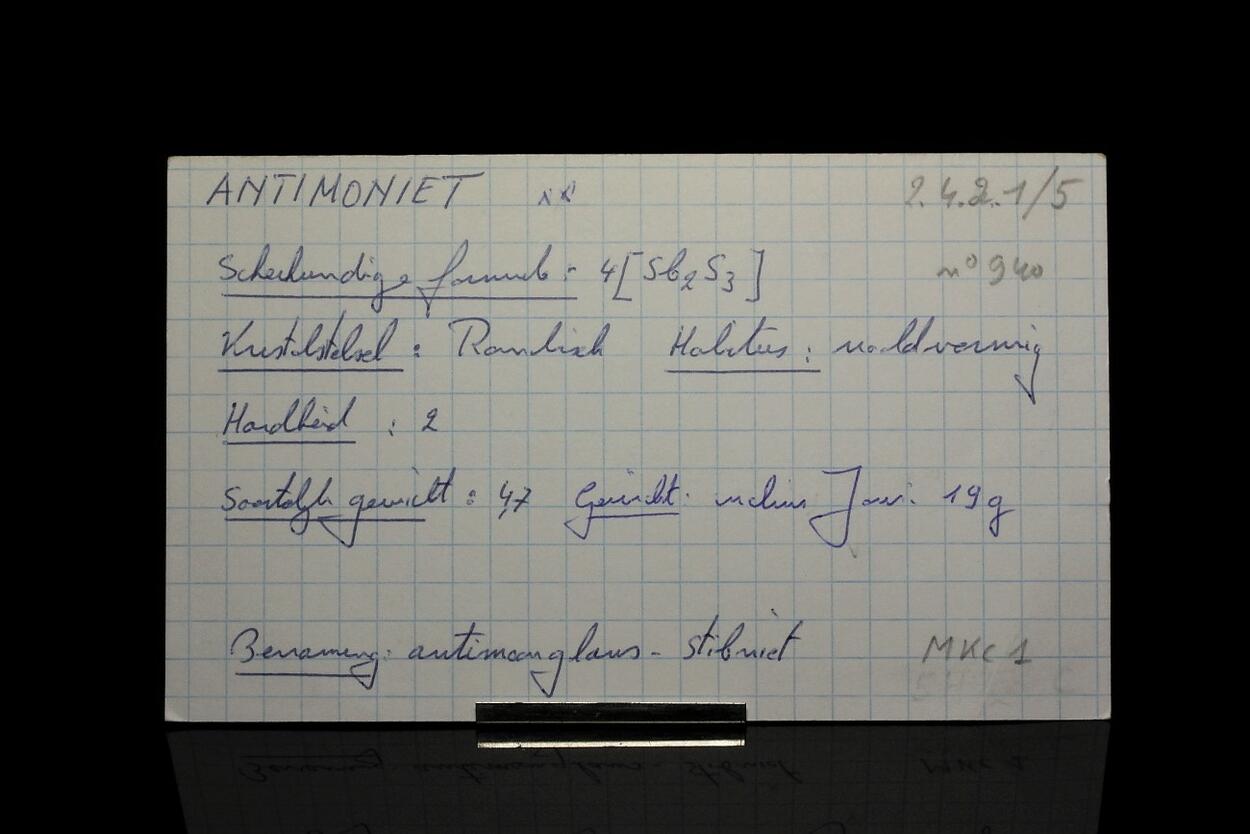 ANTIMONIET xx 2.4.2.1/5
Scheikundige formule: 4[Sb2S3] n° 940
Kristalstelsel: Rombisch Habitus: naaldvormig
Hardheid: 2
Soortelijk gewicht: 4,7 Gewicht: 19g
Benaming: antimoonglans - Stibniet MKc 1